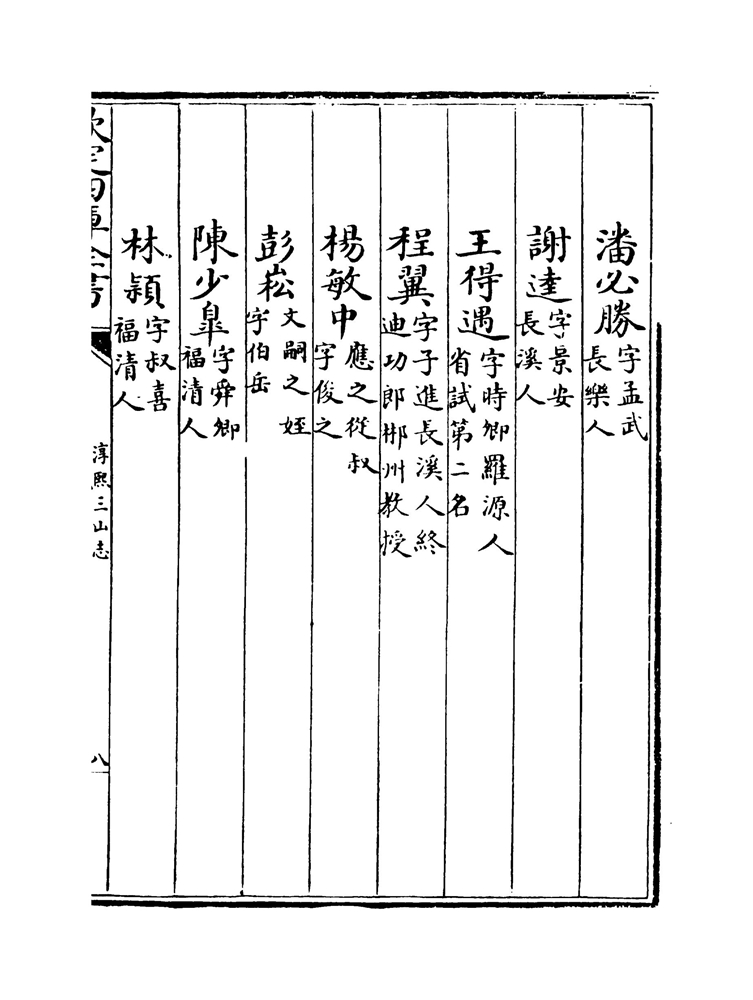 潘必勝字孟武長樂人
謝逹字景安長溪人
王得遇字時卿羅源人省試第二名
程翼字子進長溪人終迪功郎郴州教授
楊敏中應之從叔字俊之
彭崧文嗣之姪字伯岳
陳少臯字舜卿福清人
林頴字叔喜福清人
欽定四庫全書
淳熙三山志
八